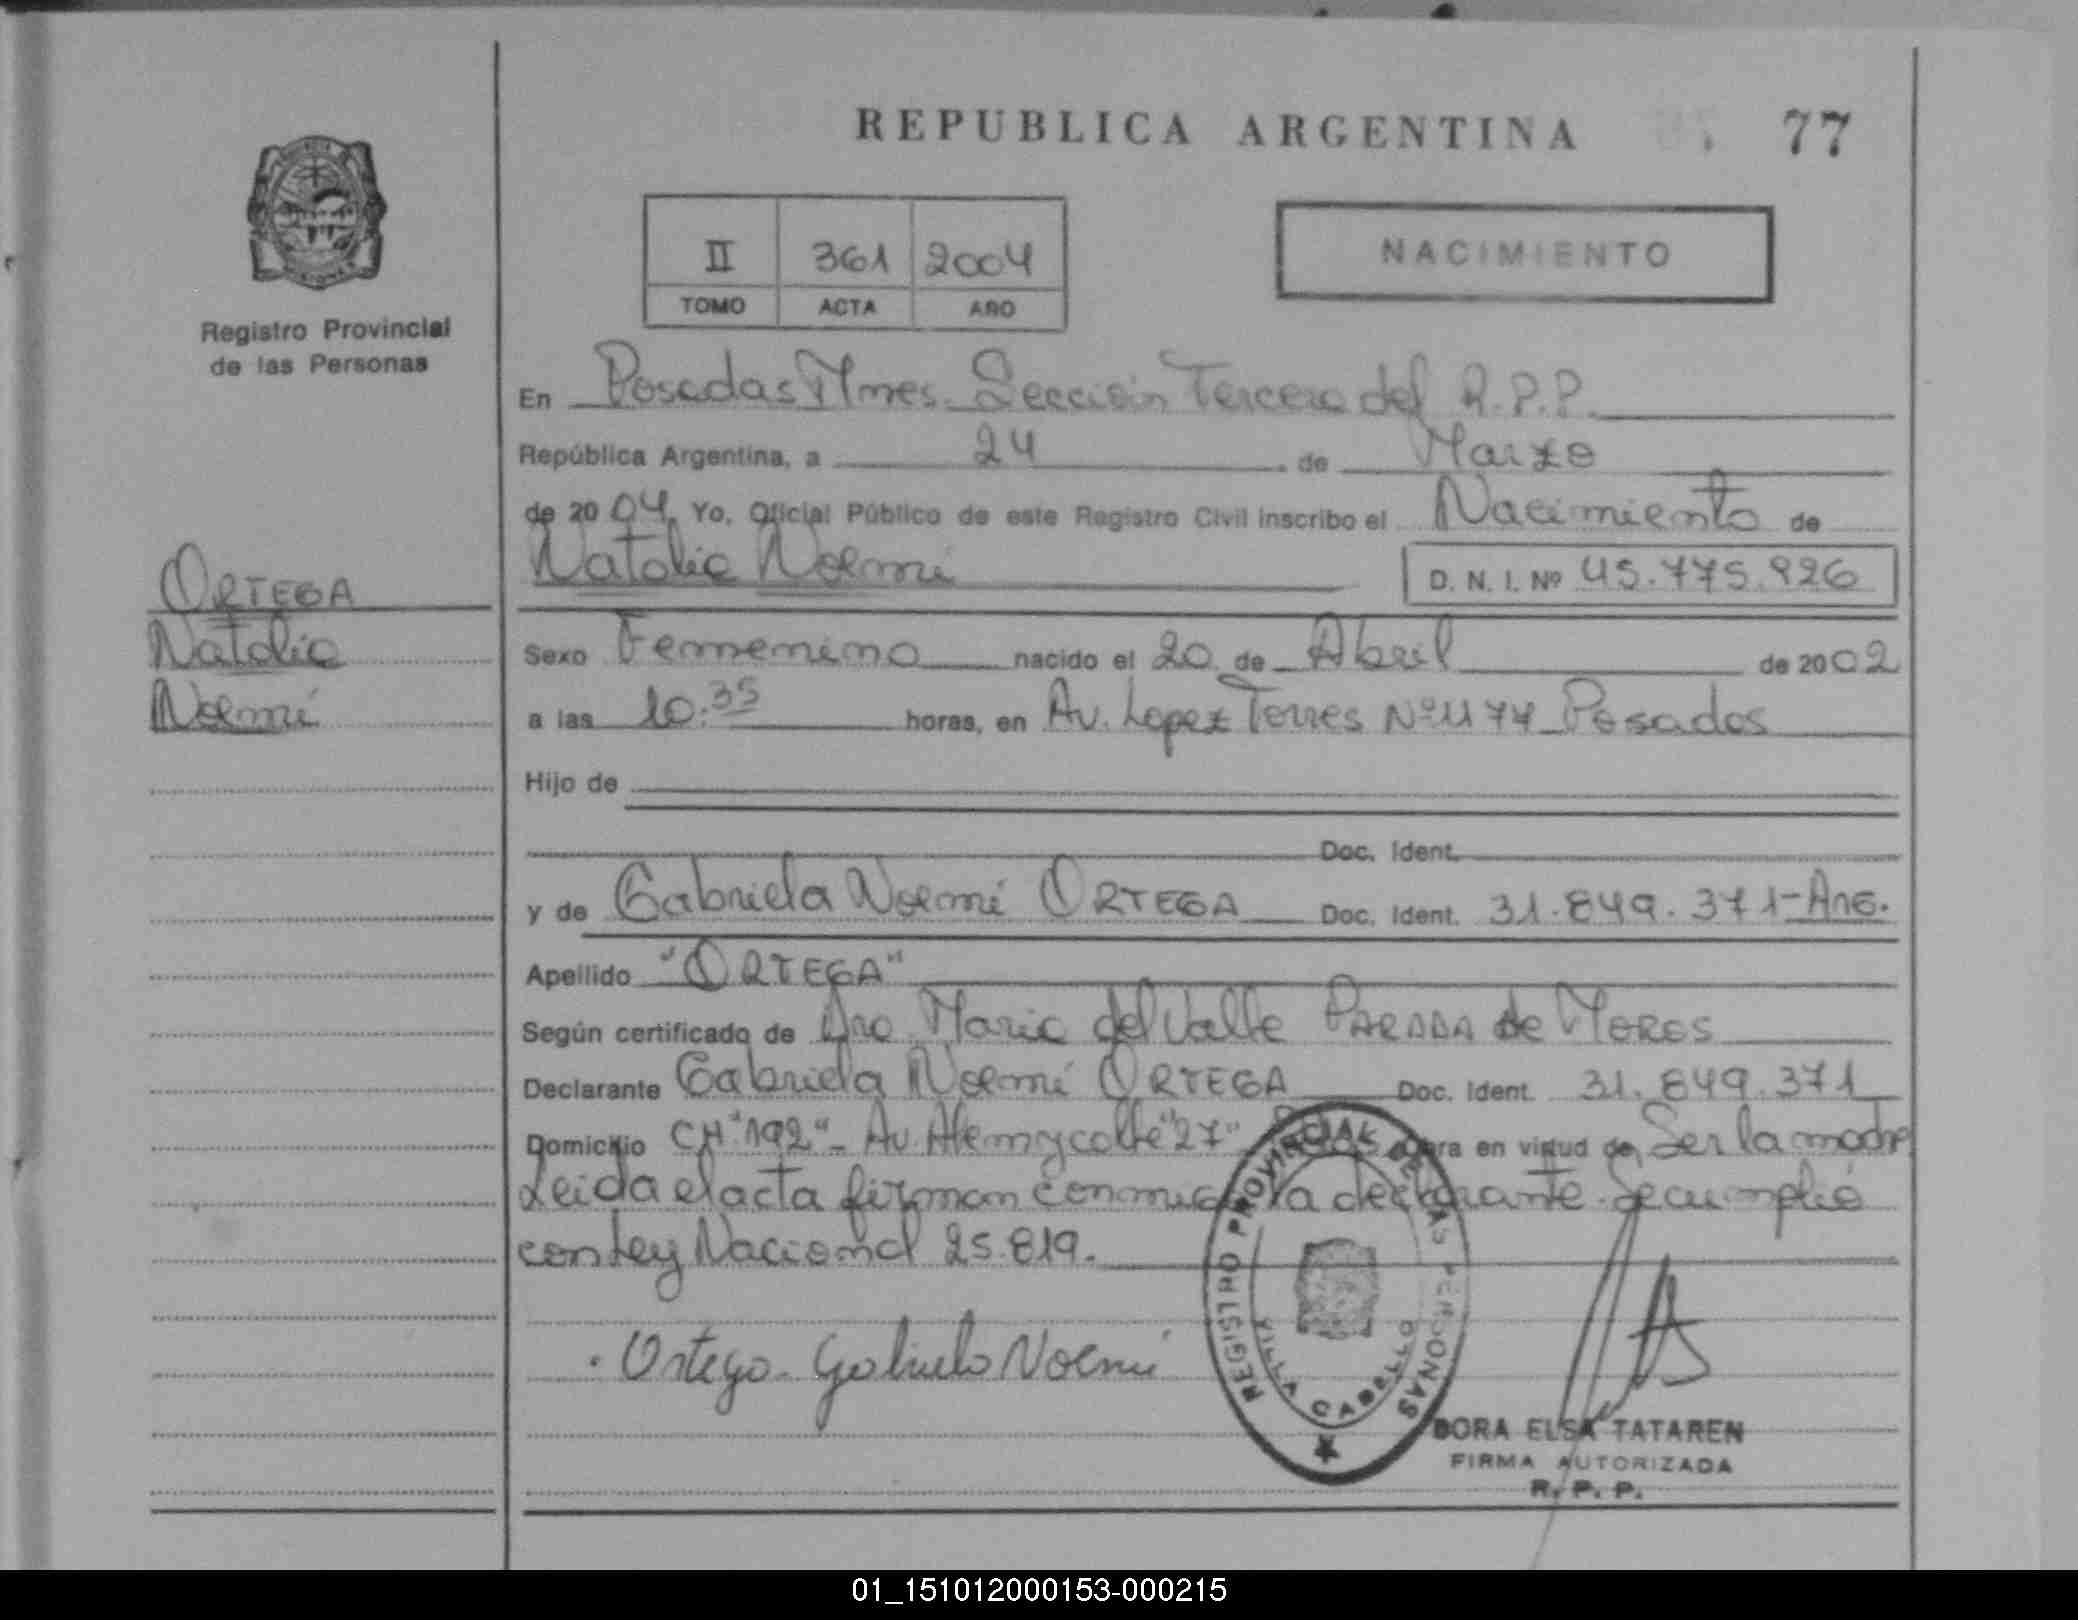 REPUBLICA ARGENTINA 77
II 361 2004
TOMO ACTA AÑO
NACIMIENTO
Registro Provincial
de las Personas
En Posadas Mnes. Sección Tercera del R.P.P.
República Argentina, a 24 de Marzo
de 2004 Yo, Oficial Público de este Registro Civil inscribo el Nacimiento de
Natalia Noemí
D. N. I. Nº 45.775.926
ORTEGA
Natalia
Noemí
Sexo Femenino nacido el 20 de Abril de 2002
a las 10.35 horas, en Av. Lopez Torres Nº 1177 Posadas
Hijo de
Doc. Ident.
y de Gabriela Noemí ORTEGA Doc. Ident. 31.849.371-ARG.
Apellido "ORTEGA"
Según certificado de Dra. Maria del Valle PARADA de MOROS
Declarante Gabriela Noemí ORTEGA Doc. Ident. 31.849.371
Domicilio CH "192" - Av. Alem y calle "27" Obra en virtud de Ser la madre
Leida el acta firman conmigo la declarante. Se cumplió
con Ley Nacional 25.819.
Ortega Gabriela Noemí
REGISTRO PROVINCIAL DE LAS PERSONAS
VILLA CABELLO
DORA ELSA TATAREN
FIRMA AUTORIZADA
R. P. P.
01_151012000153-000215